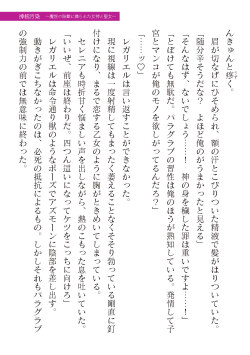 神核汚染
んきゅんと疼く。
眉が切なげにひそめられ、額の汗とこびりついた精液で髪がはりついていた。
「随分辛そうだな？　よほど俺のがうまかったと見える」
「そんなはず、ないでしょう……！　神の身を穢した罪は重いですよ……！」
「とぼけても無駄だ。パラグラブの習性は俺のほうが熟知している。発情して子
宮とマンコが俺のモノを欲しがってるんだろう？」
「……ッ♡」
レガリエルは言い返すことができなかった。
現に視線は一度射精してもまったく萎えることなくそそり勃っている剛直に釘
付けになり、まるで恋する乙女のように胸がときめいてしまっている。
セレニアも時折甘く悩ましい声を出しながら、熱のこもった息を吐いていた。
「いいぜ、前座は終わりだ。四つん這いになってケツをこっちに向けろ」
レガリエルは命令通り獣のようなポーズでアズモーンに陰部を差し出す。
動きがぎこちなかったのは、必死の抵抗によるもの。しかしそれもパラグラブ
の強制力の前では無意味に終わった。